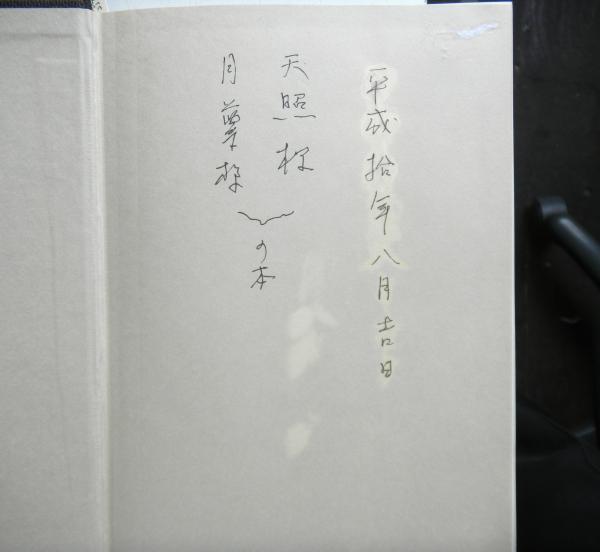 平成拾年八月吉日
天照様
月葉様
の本